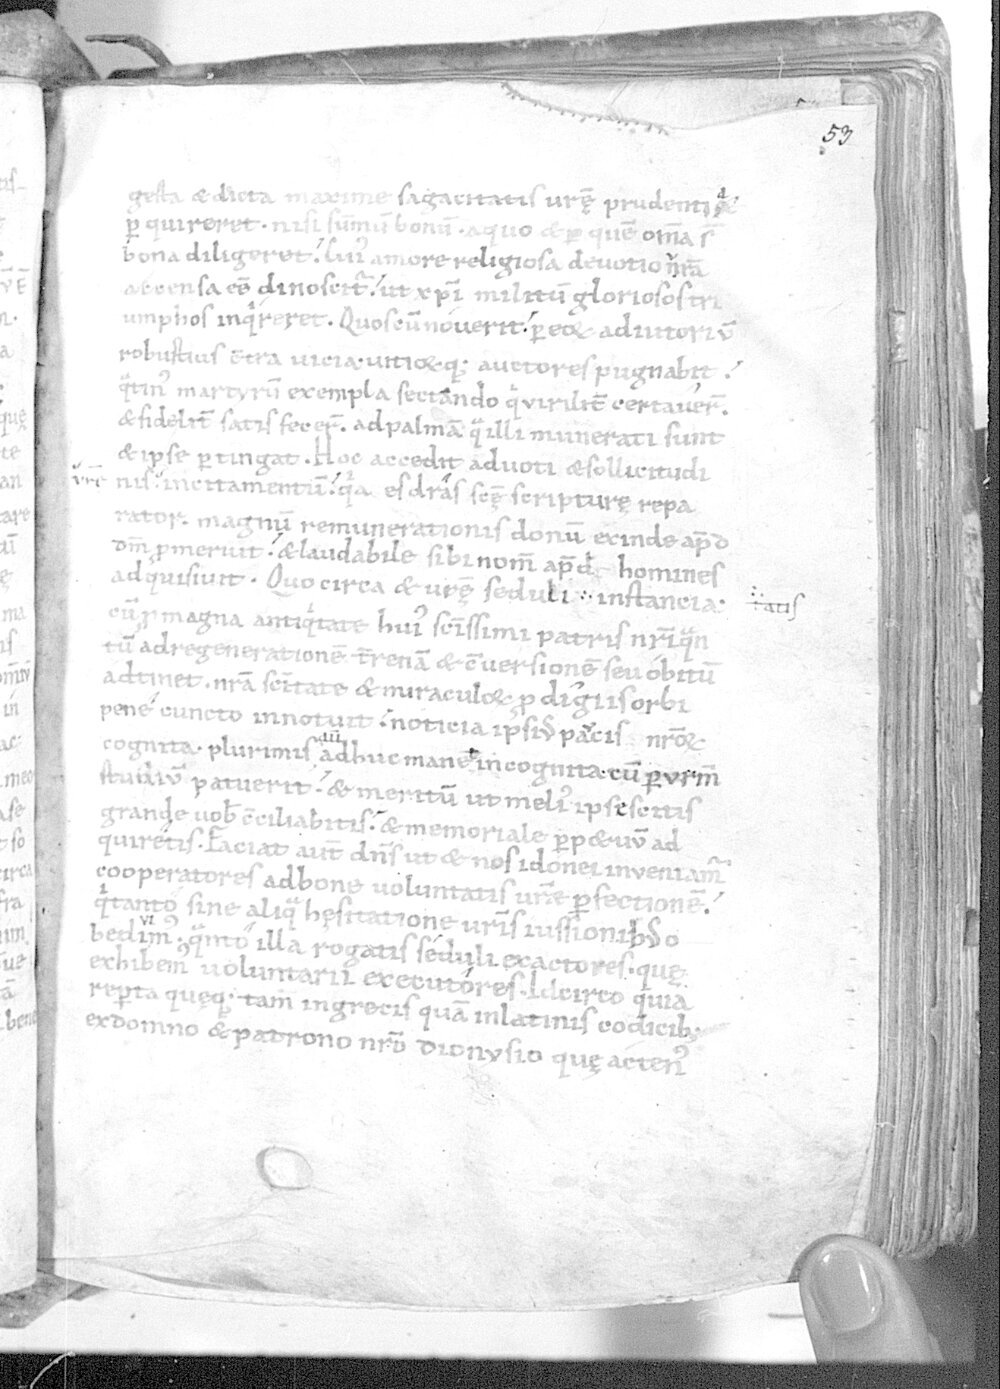 53
gesta & dicta maxime sagacitatis urę̄ prudentia
p̱quireret · nisi sūmū bonū · aquo & p̱ quē om̄a s̄
bona diligeret · Cui᾽ amore religiosa deuotio ur̄a
accensa eē dinoscit᷑ · ut xp̄i militū gloriosos tri
umphos inq̇reret · Quos cū nouerit · p̱ eoꝝ adiutoriū
robustius c̄tra uicia · uitioꝝq; auctores pugnabit ·
q̄tin᾽ martyrū exempla sectando q̇ uirilit̄ certauer̄ ·
& fidelit̄ satis fecer̄ · ad palmā q̄ illi munerati sunt
& ipse p̱tingat · Hoc accedit ad uoti & sollicitudi
ur̄ę nis incitamentū · q̇a esdras scę̄ scripturę repa
rator · magnū remunerationis donū exinde ap̄d
dm̄ p̱meruit · & laudabile sibi nom̄ ap̄d homines
adquisiuit · Quo circa & urę̄ seduli instancia · tatis
cū p̱magna antiq̇tate hui᾽ scīssimi patris nr̄i q̄n
tū ad regenerationē t̄renā & c̄uersionē seu obitū
adtinet · nr̄a scītate & miraculoꝝ p̱digiis orbi
penę cuncto innotuit · noticia ipsi᾽ pacis nr̄oꝝ
cognita · plurimis adhuc mane incognita · cū p̱ ur̄m
studiū patuerit · & meritū ut meli᾽ ipse scitis
grande uob̄ c̄ciliabitis · & memoriale p̱p&uū ad
quiretis · Faciat aut̄ dn̄s ut & nos idonei inueniam᷑
cooperatores ad bonę uoluntatis ur̄ę p̱fectionē ·
q̇ tanto sine aliq̄ hęsitatione ur̄is iussionib᾽ o
bedim᾽ · q̄nto illa rogatis seduli exactores · quę
exhibem᾽ uoluntarii executores · Idcirco quia
rep̱ta quęq; tam ingrecis quā inlatinis codicib;
exdomno & patrono nr̄o dionysio quę acten᾽